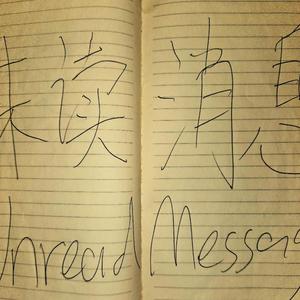 未读消息
Unread Message